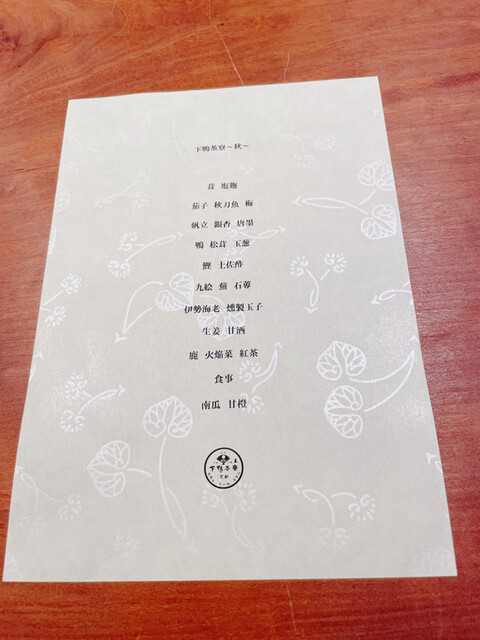 下鴨茶寮〜秋〜
茸 塩麹
茄子 秋刀魚 梅
帆立 銀杏 唐墨
鴨 松茸 玉葱
鰹 土佐酢
九絵 蕪 石蓴
伊勢海老 燻製玉子
生姜 甘酒
鹿 火焔菜 紅茶
食事
南瓜 甘橙
下鴨茶寮
京都